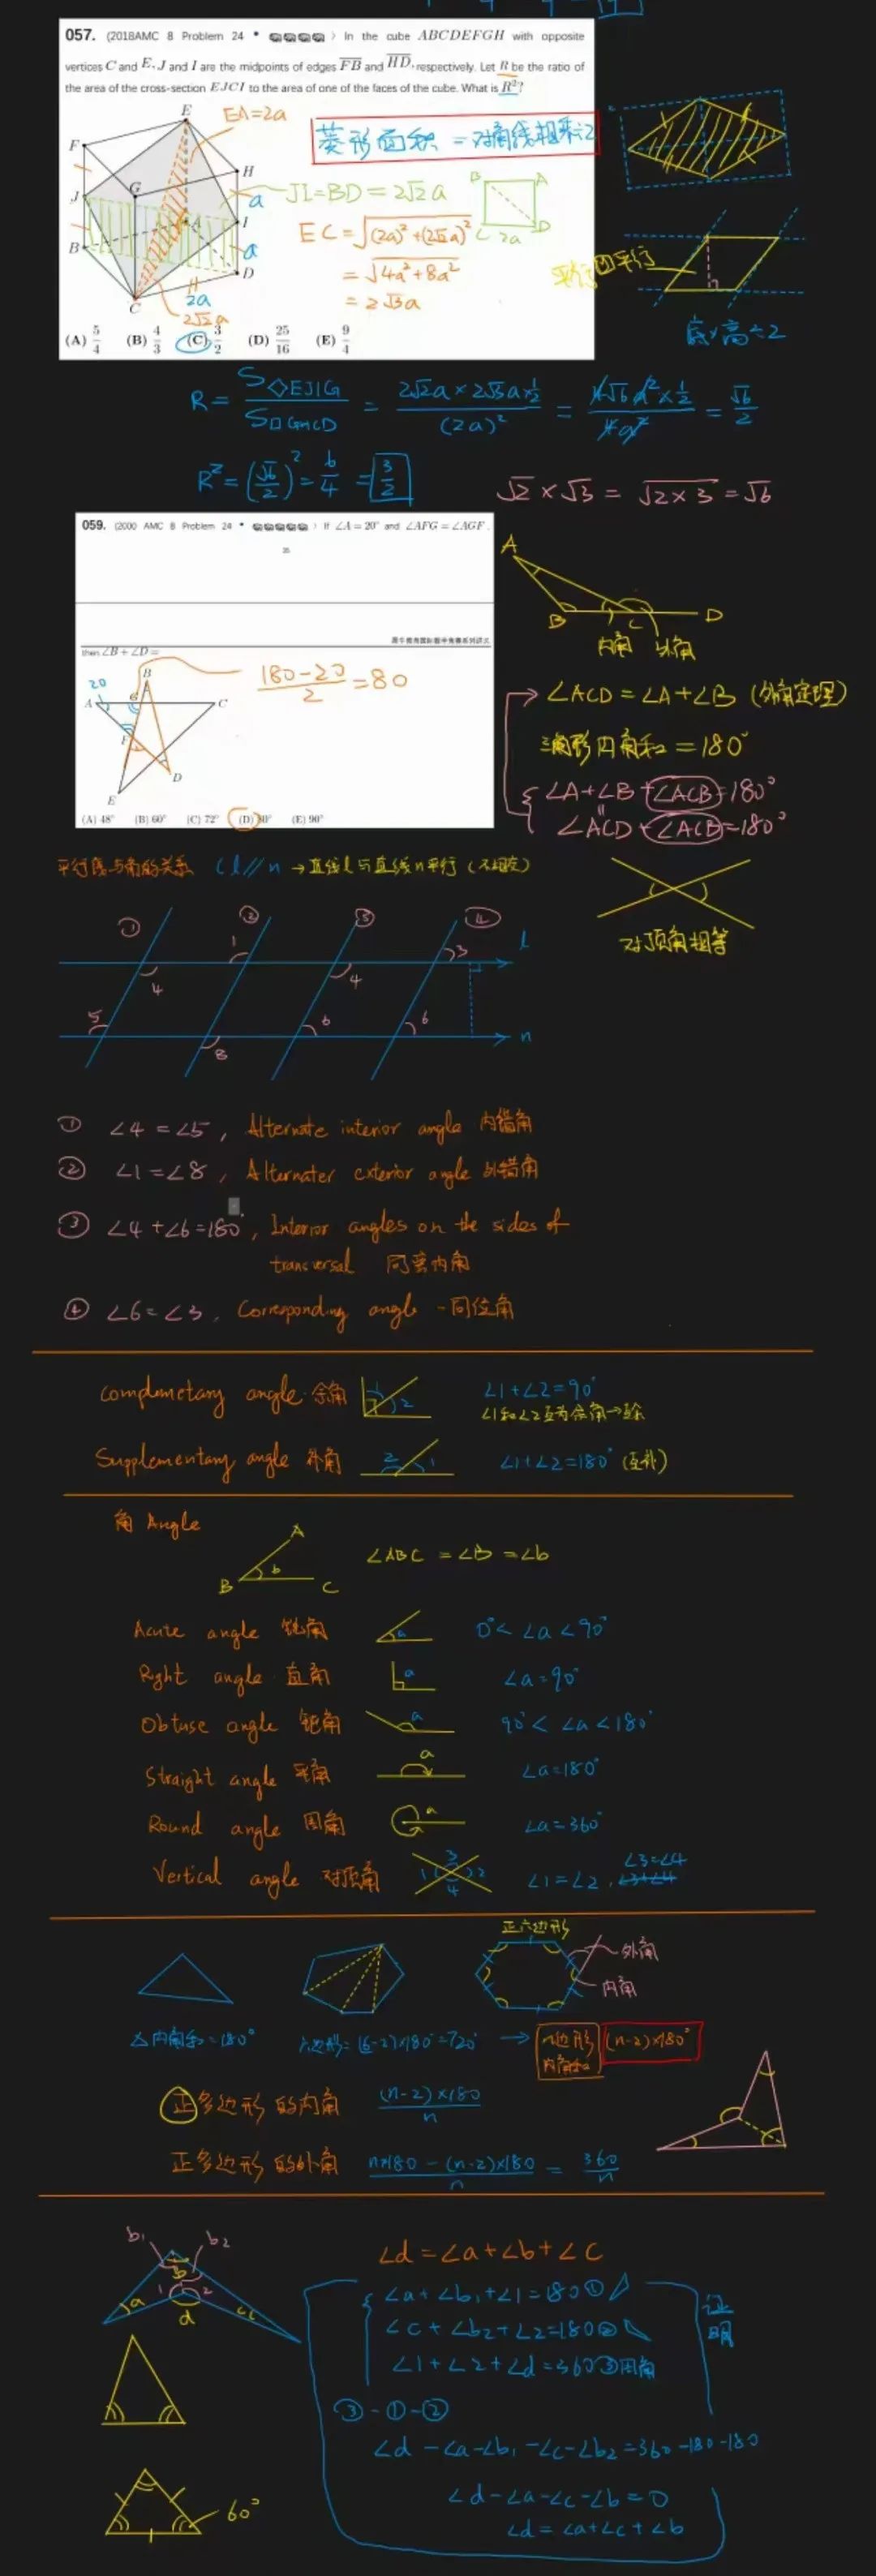 057. (2018AMC 8 Problem 24 • ) In the cube ABCDEFGH with opposite
vertices C and E, J and I are the midpoints of edges FB and HD, respectively. Let R be the ratio of
the area of the cross-section EJCI to the area of one of the faces of the cube. What is R²?
E EA=2a
菱形面积 = 对角线相乘÷2
F H
G
J a JI=BD=2√2a B A
I EC=√(2a)²+(2√2a)² C 2a D
B a =√4a²+8a²
D =2√3a
2a
C 2√2a
平行四平行
底×高÷2
(A) 5/4 (B) 4/3 (C) 3/2 (D) 25/16 (E) 9/4
R = S◇EJIG / S□GHCD = 2√2a×2√3a×½ / (2a)² = 4√6a²×½ / 4a² = √6/2
R² = (√6/2)² = 6/4 = 3/2
√2 × √3 = √2×3 = √6
059. (2000 AMC 8 Problem 24 • ) If ∠A = 20° and ∠AFG = ∠AGF,
35
犀牛教育国际数学竞赛系列讲义
then ∠B + ∠D =
(180-20)/2 = 80
20 B
A G C
F
D
E
(A) 48° (B) 60° (C) 72° (D) 80° (E) 90°
A
B C D
内角 外角
∠ACD = ∠A+∠B (外角定理)
三角形内角和 = 180°
∠A+∠B+∠ACB=180°
∠ACD+∠ACB=180°
对顶角相等
平行线与角的关系 (l//n → 直线l与直线n平行 (不相交)
① ② ③ ④
1 3 l
4 4
5 6 6 n
8
① ∠4=∠5, Alternate interior angle 内错角
② ∠1=∠8, Alternater exterior angle 外错角
③ ∠4+∠6=180°, Interior angles on the sides of
transversal 同旁内角
④ ∠6=∠3, Corresponding angle - 同位角
Complemetary angle 余角 1 2 ∠1+∠2=90°
∠1和∠2互为余角→互余
Supplementary angle 补角 2 1 ∠1+∠2=180° (互补)
角 Angle
A
B b C ∠ABC = ∠B = ∠b
Acute angle 锐角 a 0°< ∠a <90°
Right angle 直角 a ∠a=90°
Obtuse angle 钝角 a 90°< ∠a <180°
Straight angle 平角 a ∠a=180°
Round angle 周角 a ∠a=360°
Vertical angle 对顶角 1 3 2 4 ∠1=∠2, ∠3=∠4
正六边形
外角
内角
△内角和=180° 六边形=(6-2)×180°=720° → n边形内角和 (n-2)×180°
正多边形的内角 (n-2)×180 / n
正多边形的外角 n×180-(n-2)×180 / n = 360/n
b₁ b₂
b
a 1 2 c
d
∠d = ∠a+∠b+∠c
∠a+∠b₁+∠1=180①
∠c+∠b₂+∠2=180②
∠1+∠2+∠d=360③周角
证明
③-①-②
∠d-∠a-∠b₁-∠c-∠b₂=360-180-180
∠d-∠a-∠c-∠b=0
∠d=∠a+∠c+∠b
60°